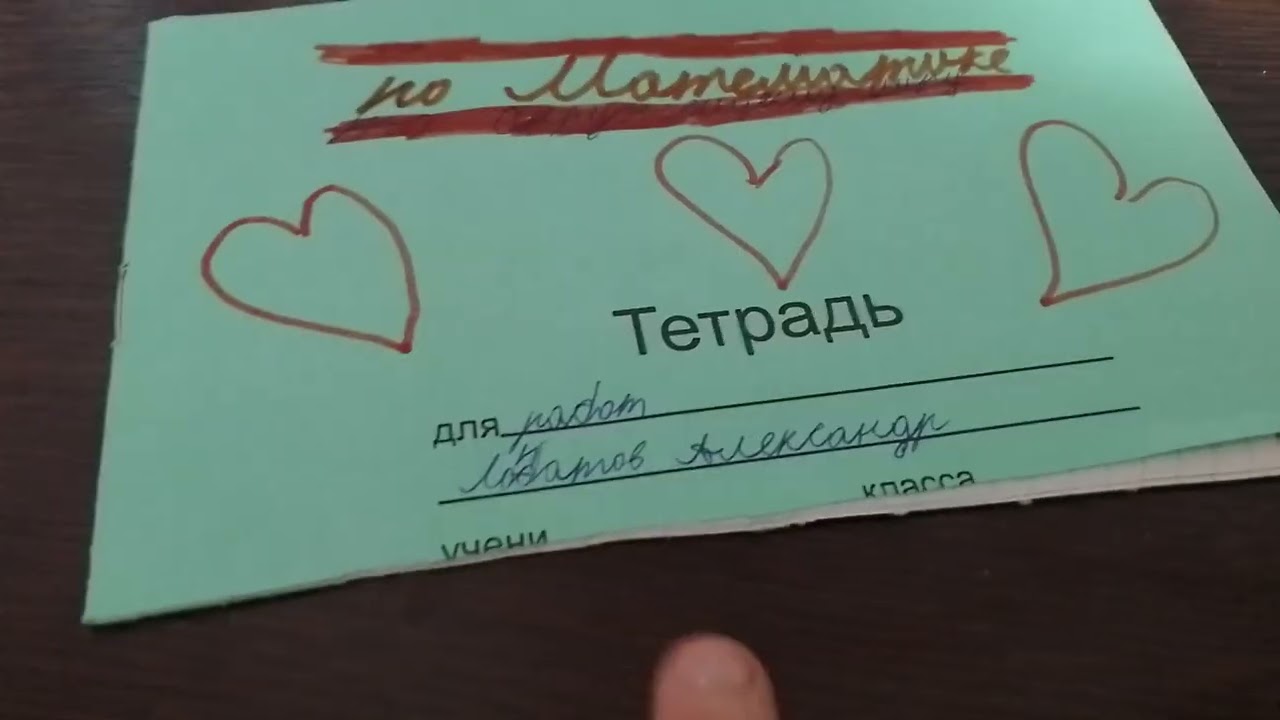 по Математике
Тетрадь
для работ
Александр
учени класса